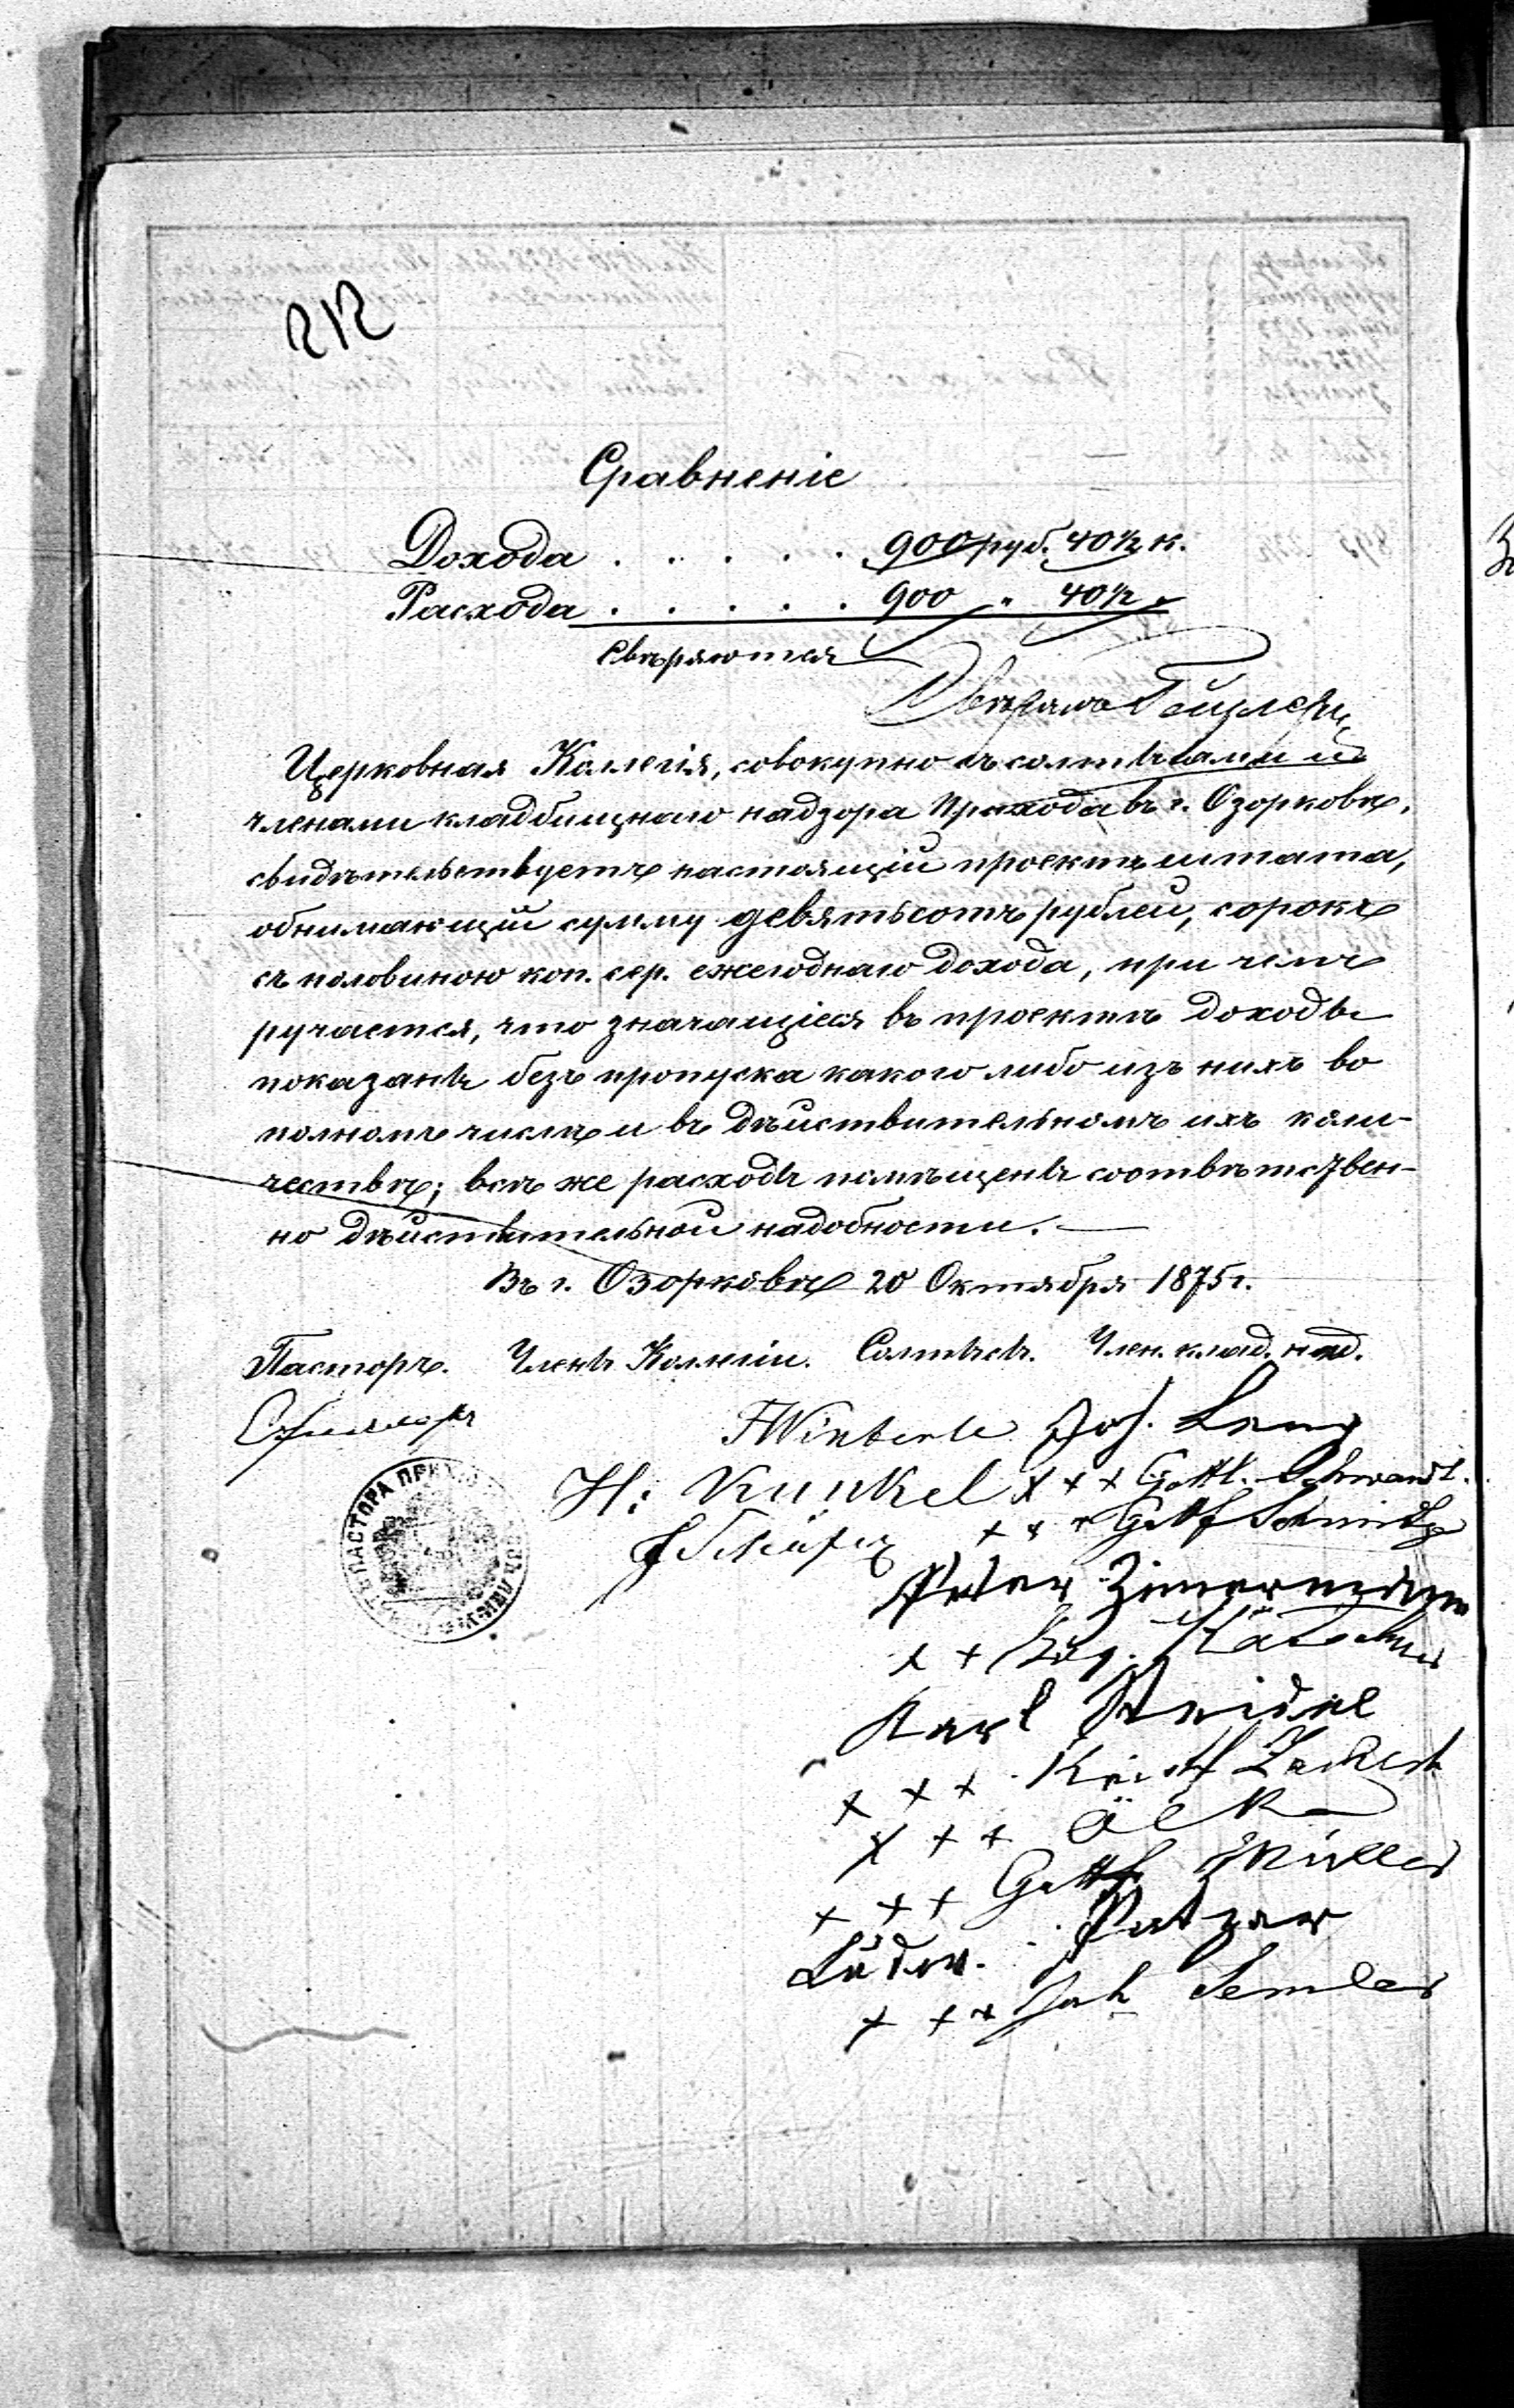 212
Сравненіе
Дохода . . . . . 900 руб. 40½ к.
Расхода . . . . . 900 „ 40½ „
Свѣряются
Церковная Коллегія, совокупно съ солтысами и съ
членами кладбищнаго надзора Прихода въ г. Озорковѣ,
свидѣтельствуетъ настоящій проектъ штата,
обнимающій сумму девятьсотъ рублей, сорокъ
съ половиною коп. сер. ежегоднаго дохода, при чёмъ
ручается, что значащіеся въ проектѣ доходы
показаны безъ пропуска какого либо изъ нихъ во
полномъ числѣ и въ дѣйствительномъ ихъ коли-
чествѣ; всѣ же расходы помѣщены соотвѣтствен-
но дѣйствительной надобности. —
Въ г. Озорковѣ 20 Октября 1875 г.
Пасторъ. Члены Коллегіи. Солтысы. Член. клад. над.
Joh. Lang
H: Kunkel +++ Gottl. Schwandt.
+++ Gottf Schmidt
Peter Zimermann
++
Karl Seidel
+++
+++
+++ Gottf Müller
Ludw. Patzer
+++ Joh Semler
ПАСТОРА ПРИХ